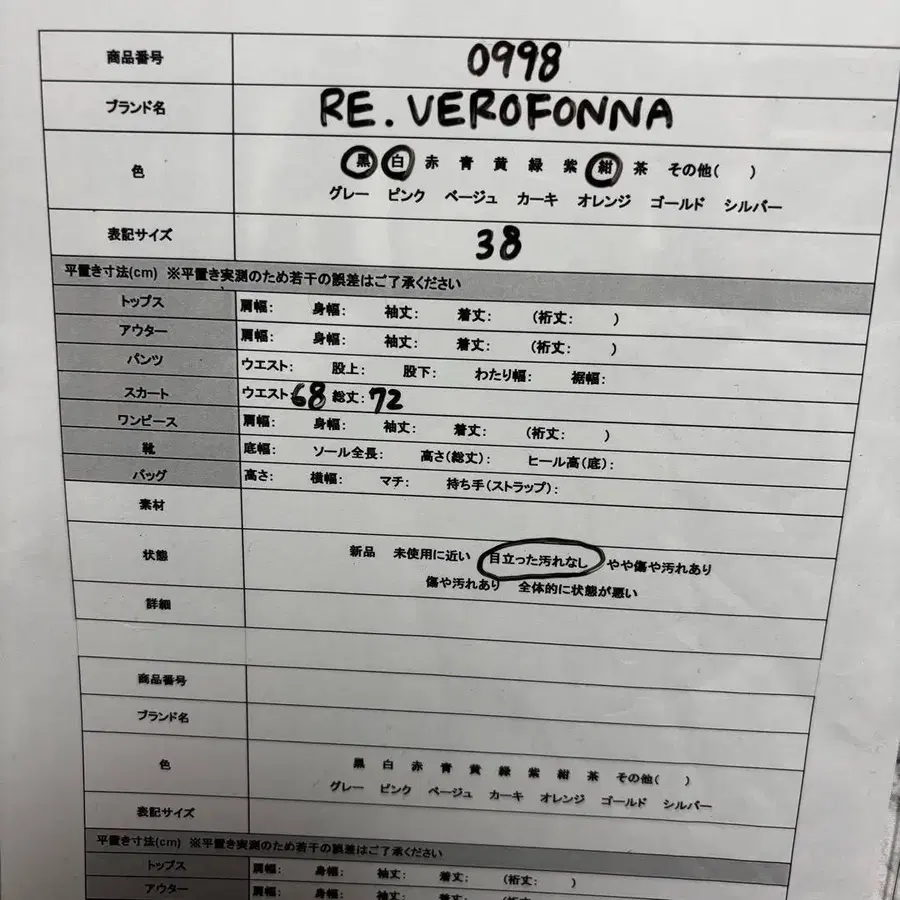 商品番号 0998
ブランド名 RE.VEROFONNA
色 黒 白 赤 青 黄 緑 紫 紺 茶 その他( )
グレー ピンク ベージュ カーキ オレンジ ゴールド シルバー
表記サイズ 38
平置き寸法(cm) ※平置き実測のため若干の誤差はご了承ください
トップス 肩幅: 身幅: 袖丈: 着丈: (裄丈: )
アウター 肩幅: 身幅: 袖丈: 着丈: (裄丈: )
パンツ ウエスト: 股上: 股下: わたり幅: 裾幅:
スカート ウエスト:68 総丈:72
ワンピース 肩幅: 身幅: 袖丈: 着丈: (裄丈: )
靴 底幅: ソール全長: 高さ(総丈): ヒール高(底):
バッグ 高さ: 横幅: マチ: 持ち手(ストラップ):
素材
状態 新品 未使用に近い 目立った汚れなし やや傷や汚れあり
傷や汚れあり 全体的に状態が悪い
詳細
商品番号
ブランド名
色 黒 白 赤 青 黄 緑 紫 紺 茶 その他( )
グレー ピンク ベージュ カーキ オレンジ ゴールド シルバー
表記サイズ
平置き寸法(cm) ※平置き実測のため若干の誤差はご了承ください
トップス 肩幅: 身幅: 袖丈: 着丈: (裄丈: )
アウター 肩幅: 身幅: 袖丈: 着丈: